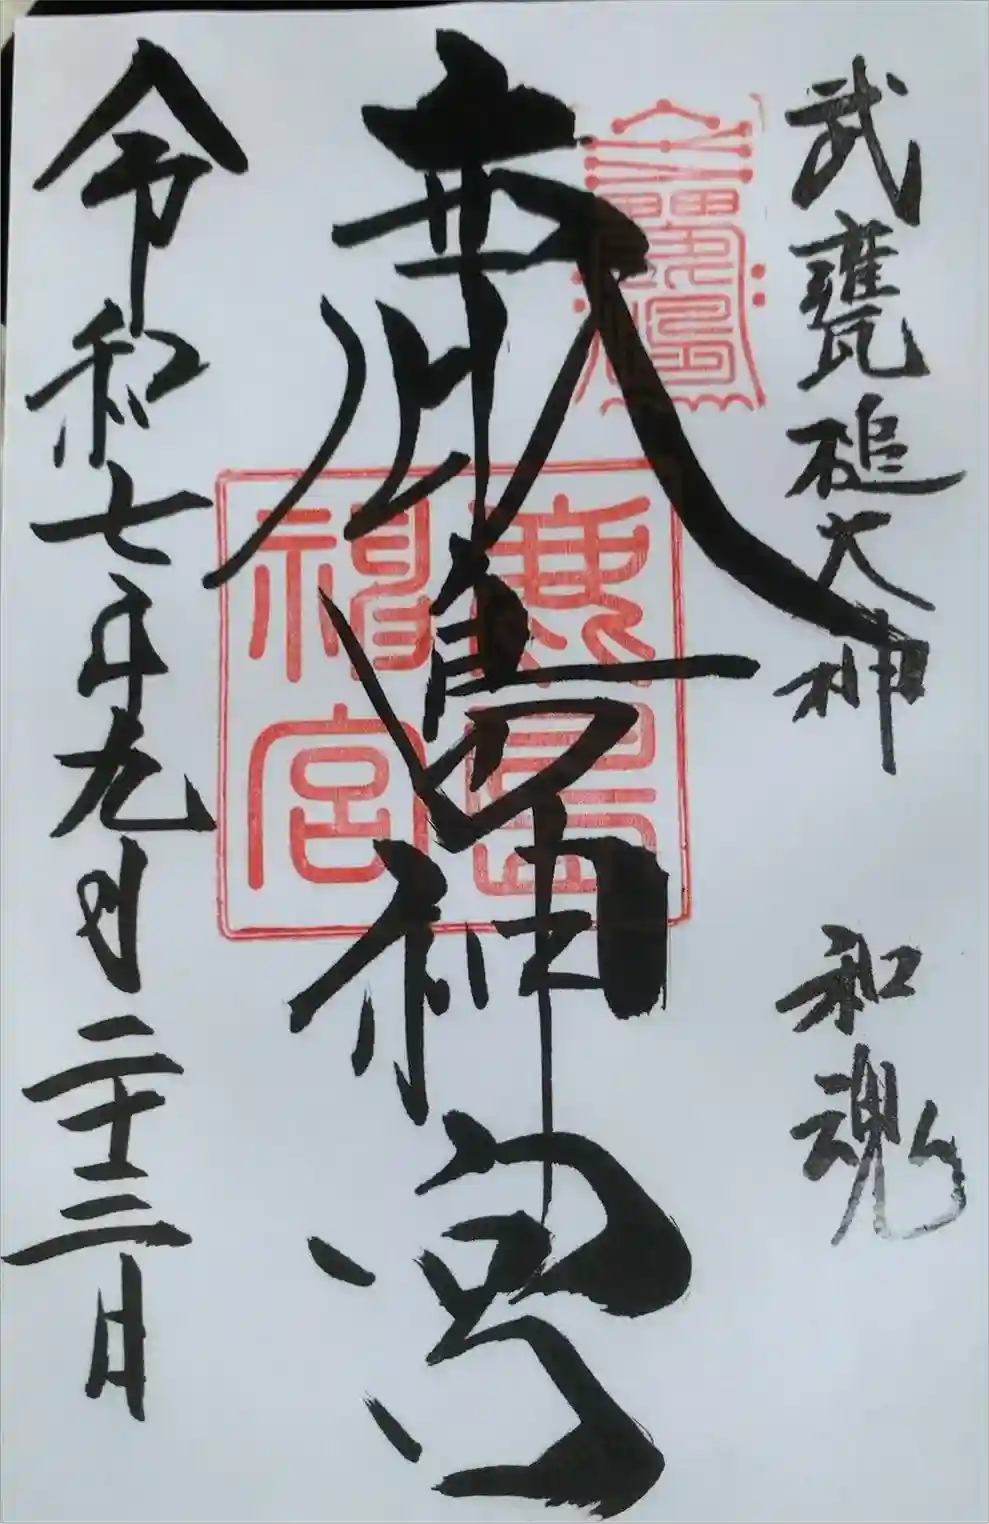 武甕槌大神 和魂
鹿島神宮
鹿島神宮
令和七年九月二十三日